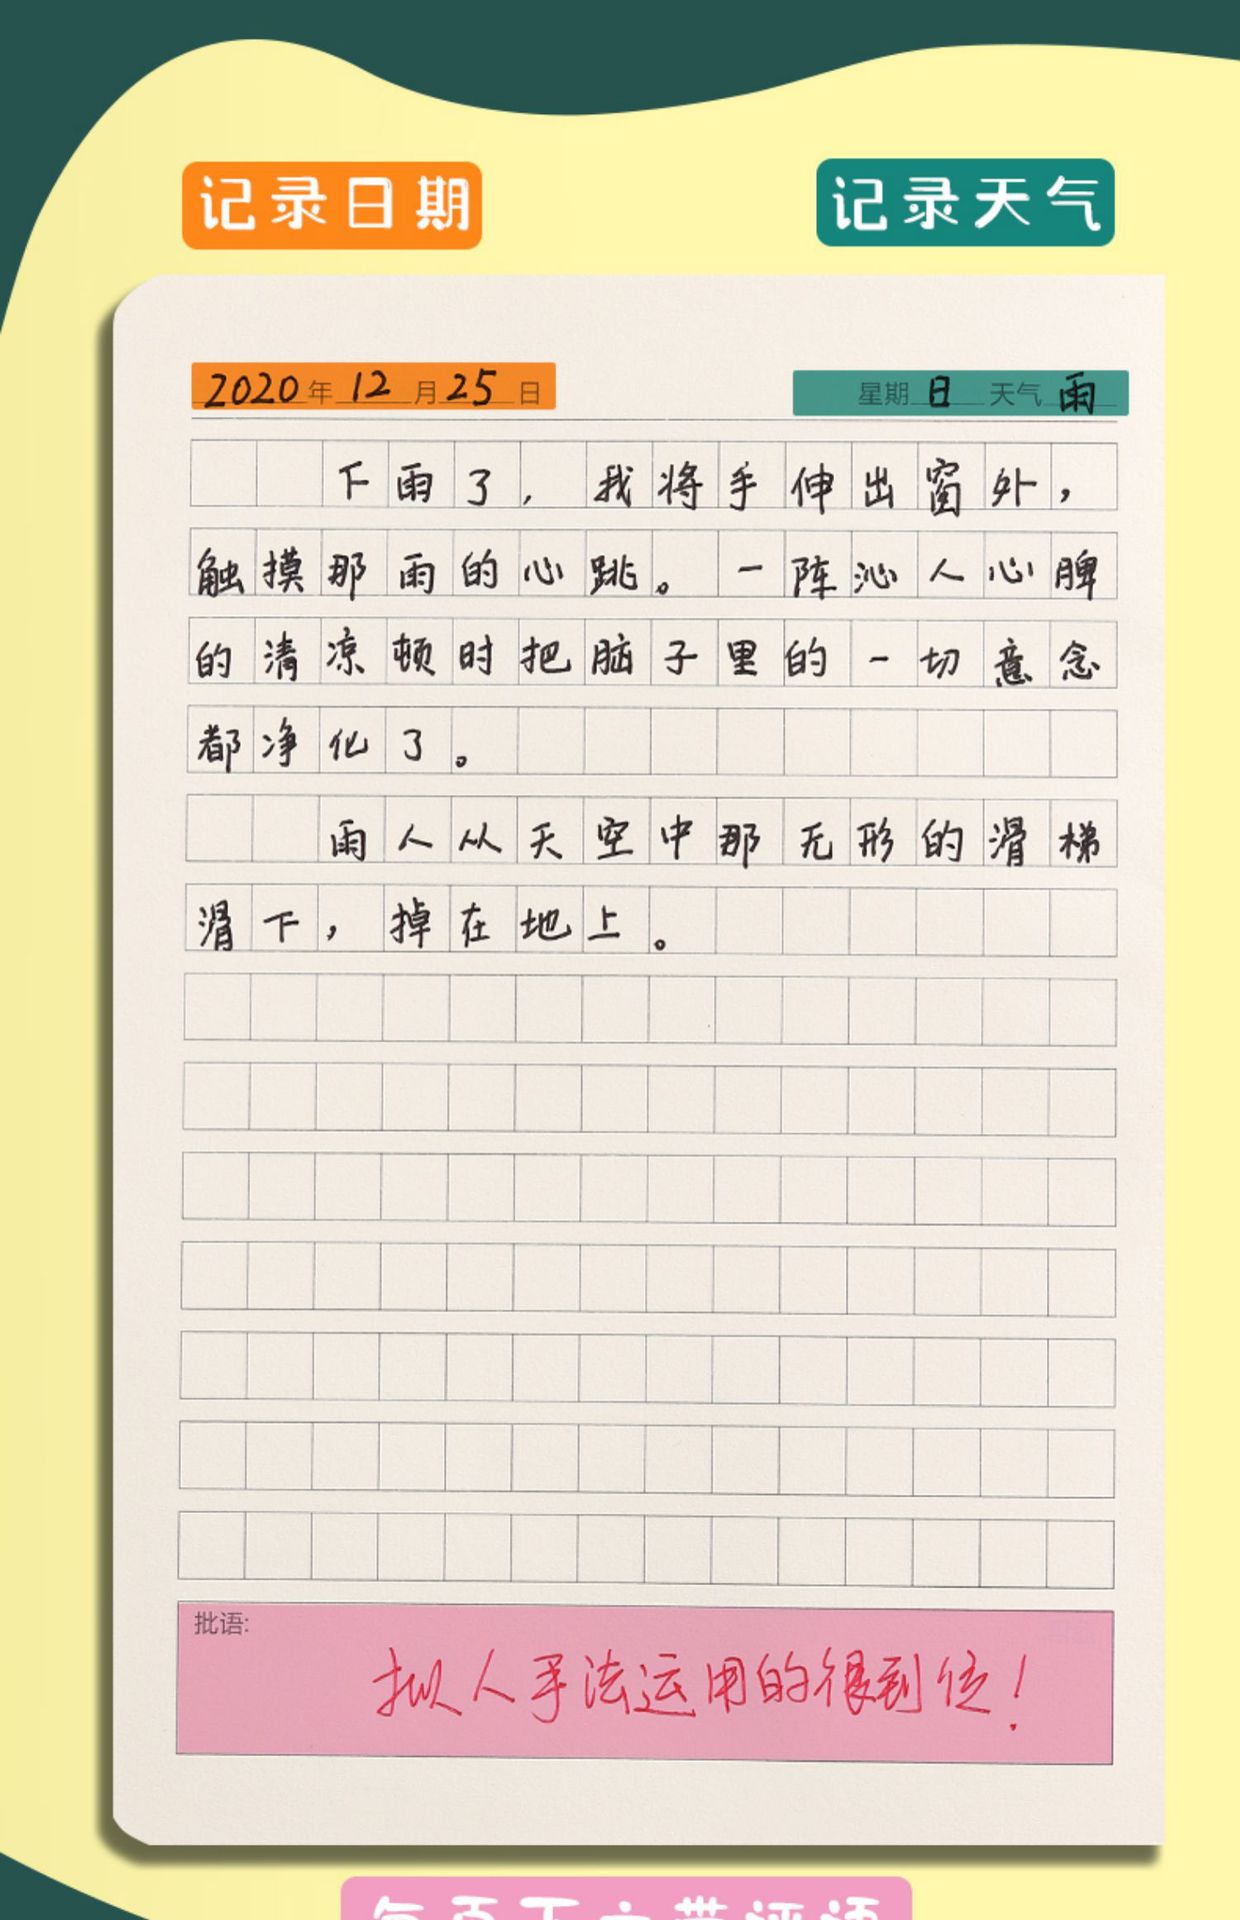 记录日期 记录天气
2020年12月25日 星期日 天气雨
下雨了，我将手伸出窗外，
触摸那雨的心跳。一阵沁人心脾
的清凉顿时把脑子里的一切意念
都净化了。
雨人从天空中那无形的滑梯
滑下，掉在地上。
批语:
拟人手法运用的很到位！